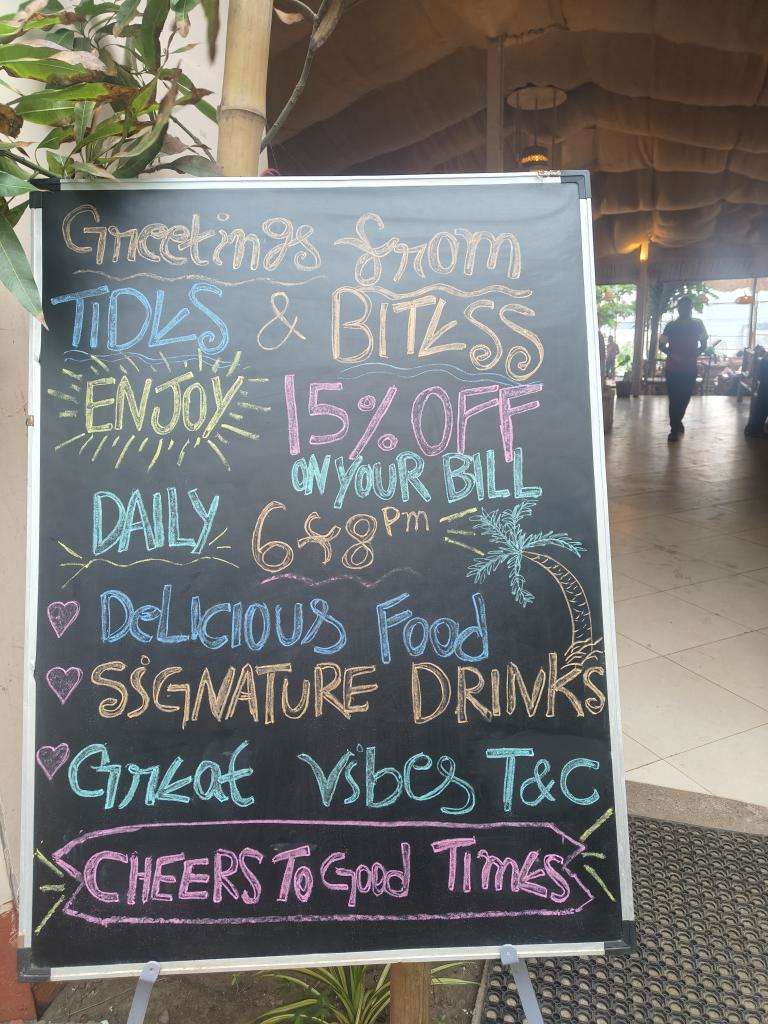 Greetings from
TIDES & BITESS
ENJOY 15% OFF
ON YOUR BILL
DAILY 6&8 Pm
DELICIOUS Food
SIGNATURE DRINKS
Great Vibes T&C
CHEERS To Good TimES